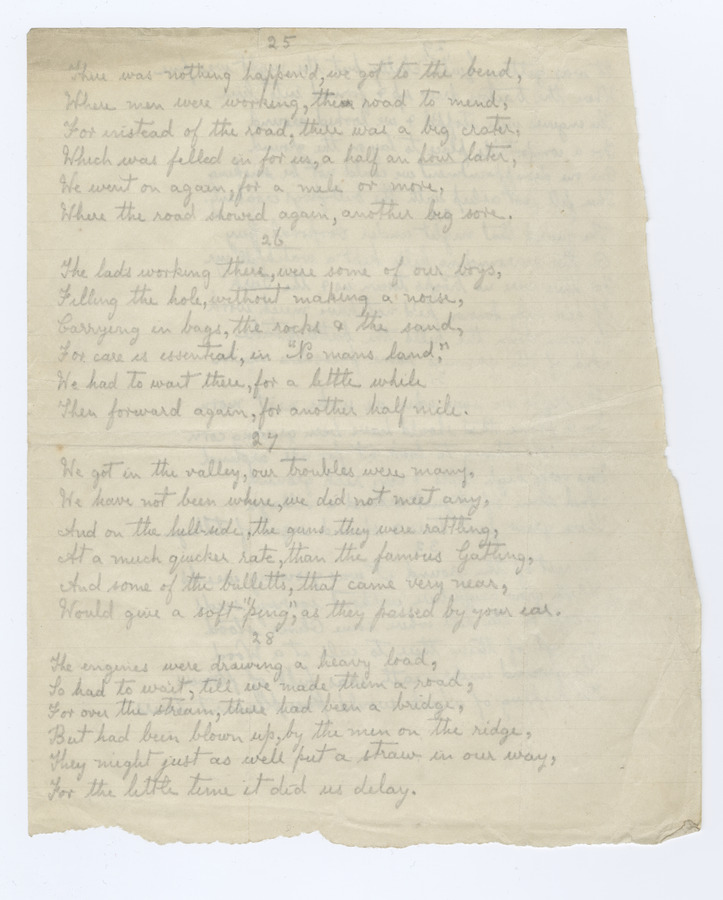 25
There was nothing happen'd, we got to the bend,
Where men were working, their road to mend,
For instead of the road, there was a big crater,
Which was felled in for us, a half an hour later,
We went on again, for a mile or more,
Where the road showed again, another big sore.
26
The lads working there, were some of our boys,
Filling the hole, without making a noise,
Carrying in bags, the rocks & the sand,
For care is essential, in "No mans land,"
We had to wait there, for a little while
Then forward again, for another half mile.
27
We got in the valley, our troubles were many,
We have not been where, we did not meet any,
And on the hill-side, the guns they were rattling,
At a much quicker rate, than the famous Gatling,
And some of the bulletts, that came very near,
Would give a soft "ping", as they passed by your ear.
28
The engines were drawing a heavy load,
So had to wait, till we made them a road,
For over the stream, there had been a bridge,
But had been blown up, by the men on the ridge,
They might just as well put a straw in our way,
For the little time it did us delay.